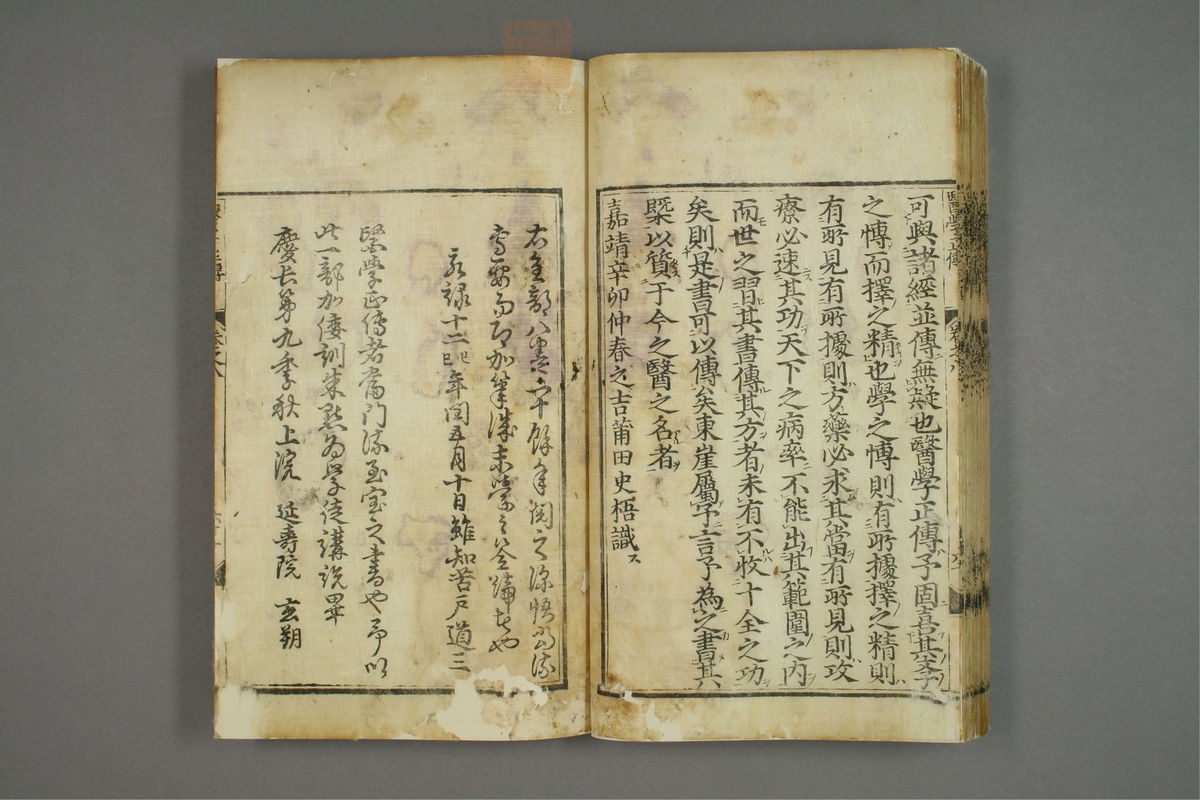 可與諸經並傳無疑也醫學正傳予固喜其學
之慱而擇之精也學之慱則有所據擇之精則
有所見有所據則方藥必求其當有所見則攻
療必速其功天下之病率不能出其範圍之內
而世之習其書傳其方者未有不收十全之功
矣則是書可以傳矣東崖屬予言予為之書其
槩以質于今之醫之名者
嘉靖辛卯仲春之吉莆田史梧識
右全部八
永祿十二己巳年閏五月十日雖知苦戶道三
醫學正傳者當門流至宝之書也予以
此一部加倭訓朱點為學徒講說畢
慶長第九季秋上浣 延壽院 玄朔
醫學正傳